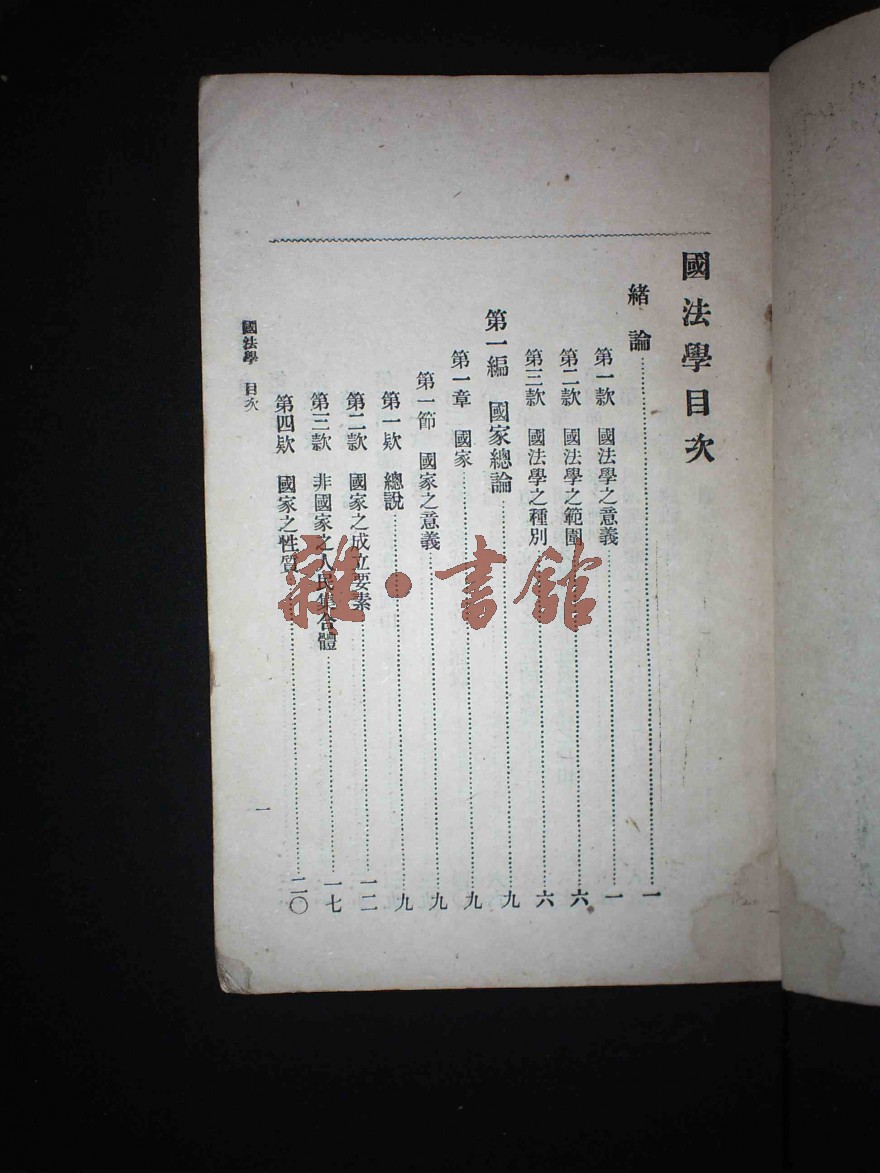 國法學目次
緒論……一
第一款 國法學之意義……一
第二款 國法學之範圍……六
第三款 國法學之種別……六
第一編 國家總論……九
第一章 國家……九
第一節 國家之意義……九
第一欵 總說……九
第二款 國家之成立要素……一二
第三款 非國家之人民集合體……一七
第四欵 國家之性質……二〇
國法學 目次
一
雜·書館